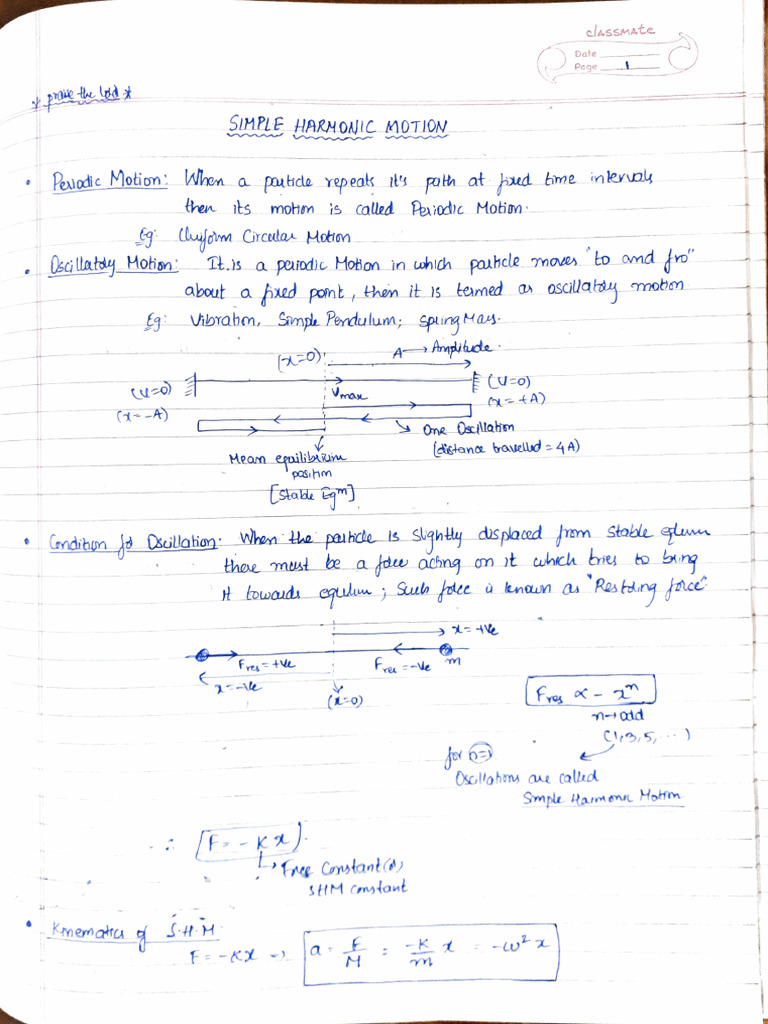 classmate
Date
Page 1
* praise the lord *
SIMPLE HARMONIC MOTION
• Periodic Motion: When a particle repeats it's path at fixed time intervals
then its motion is called Periodic Motion.
Eg: Uniform Circular Motion
• Oscillatory Motion: It is a periodic Motion in which particle moves "to and fro"
about a fixed point, then it is termed as oscillatory motion
Eg: Vibration, Simple Pendulum; Spring Mass.
(x=0) A → Amplitude.
(V=0) (V=0)
(x=-A) Vmax (x=+A)
One Oscillation
(distance travelled = 4A)
Mean equilibrium
position
[Stable Eqm]
• Condition for Oscillation: When the particle is slightly displaced from stable eqlium
there must be a force acting on it which tries to bring
it towards equlium; Such force is known as "Restoring force"
x=+ve
Fres=+ve Fres=-ve m
x=-ve
(x=0)
Fres ∝ - xⁿ
n→odd
(1,3,5,...)
for n=1
Oscillations are called
Simple Harmonic Motion
∴ F = -Kx
Force Constant (or)
SHM constant
• Kinematics of S.H.M
F=-Kx → a = F/M = -K/m x = -ω² x